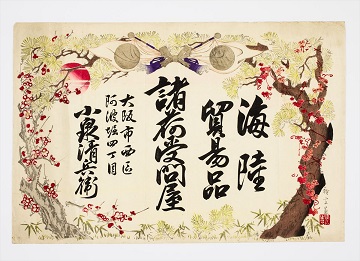 海陸
貿易品
諸荷受問屋
大阪市西区
阿波堀四丁目
小泉清兵衛